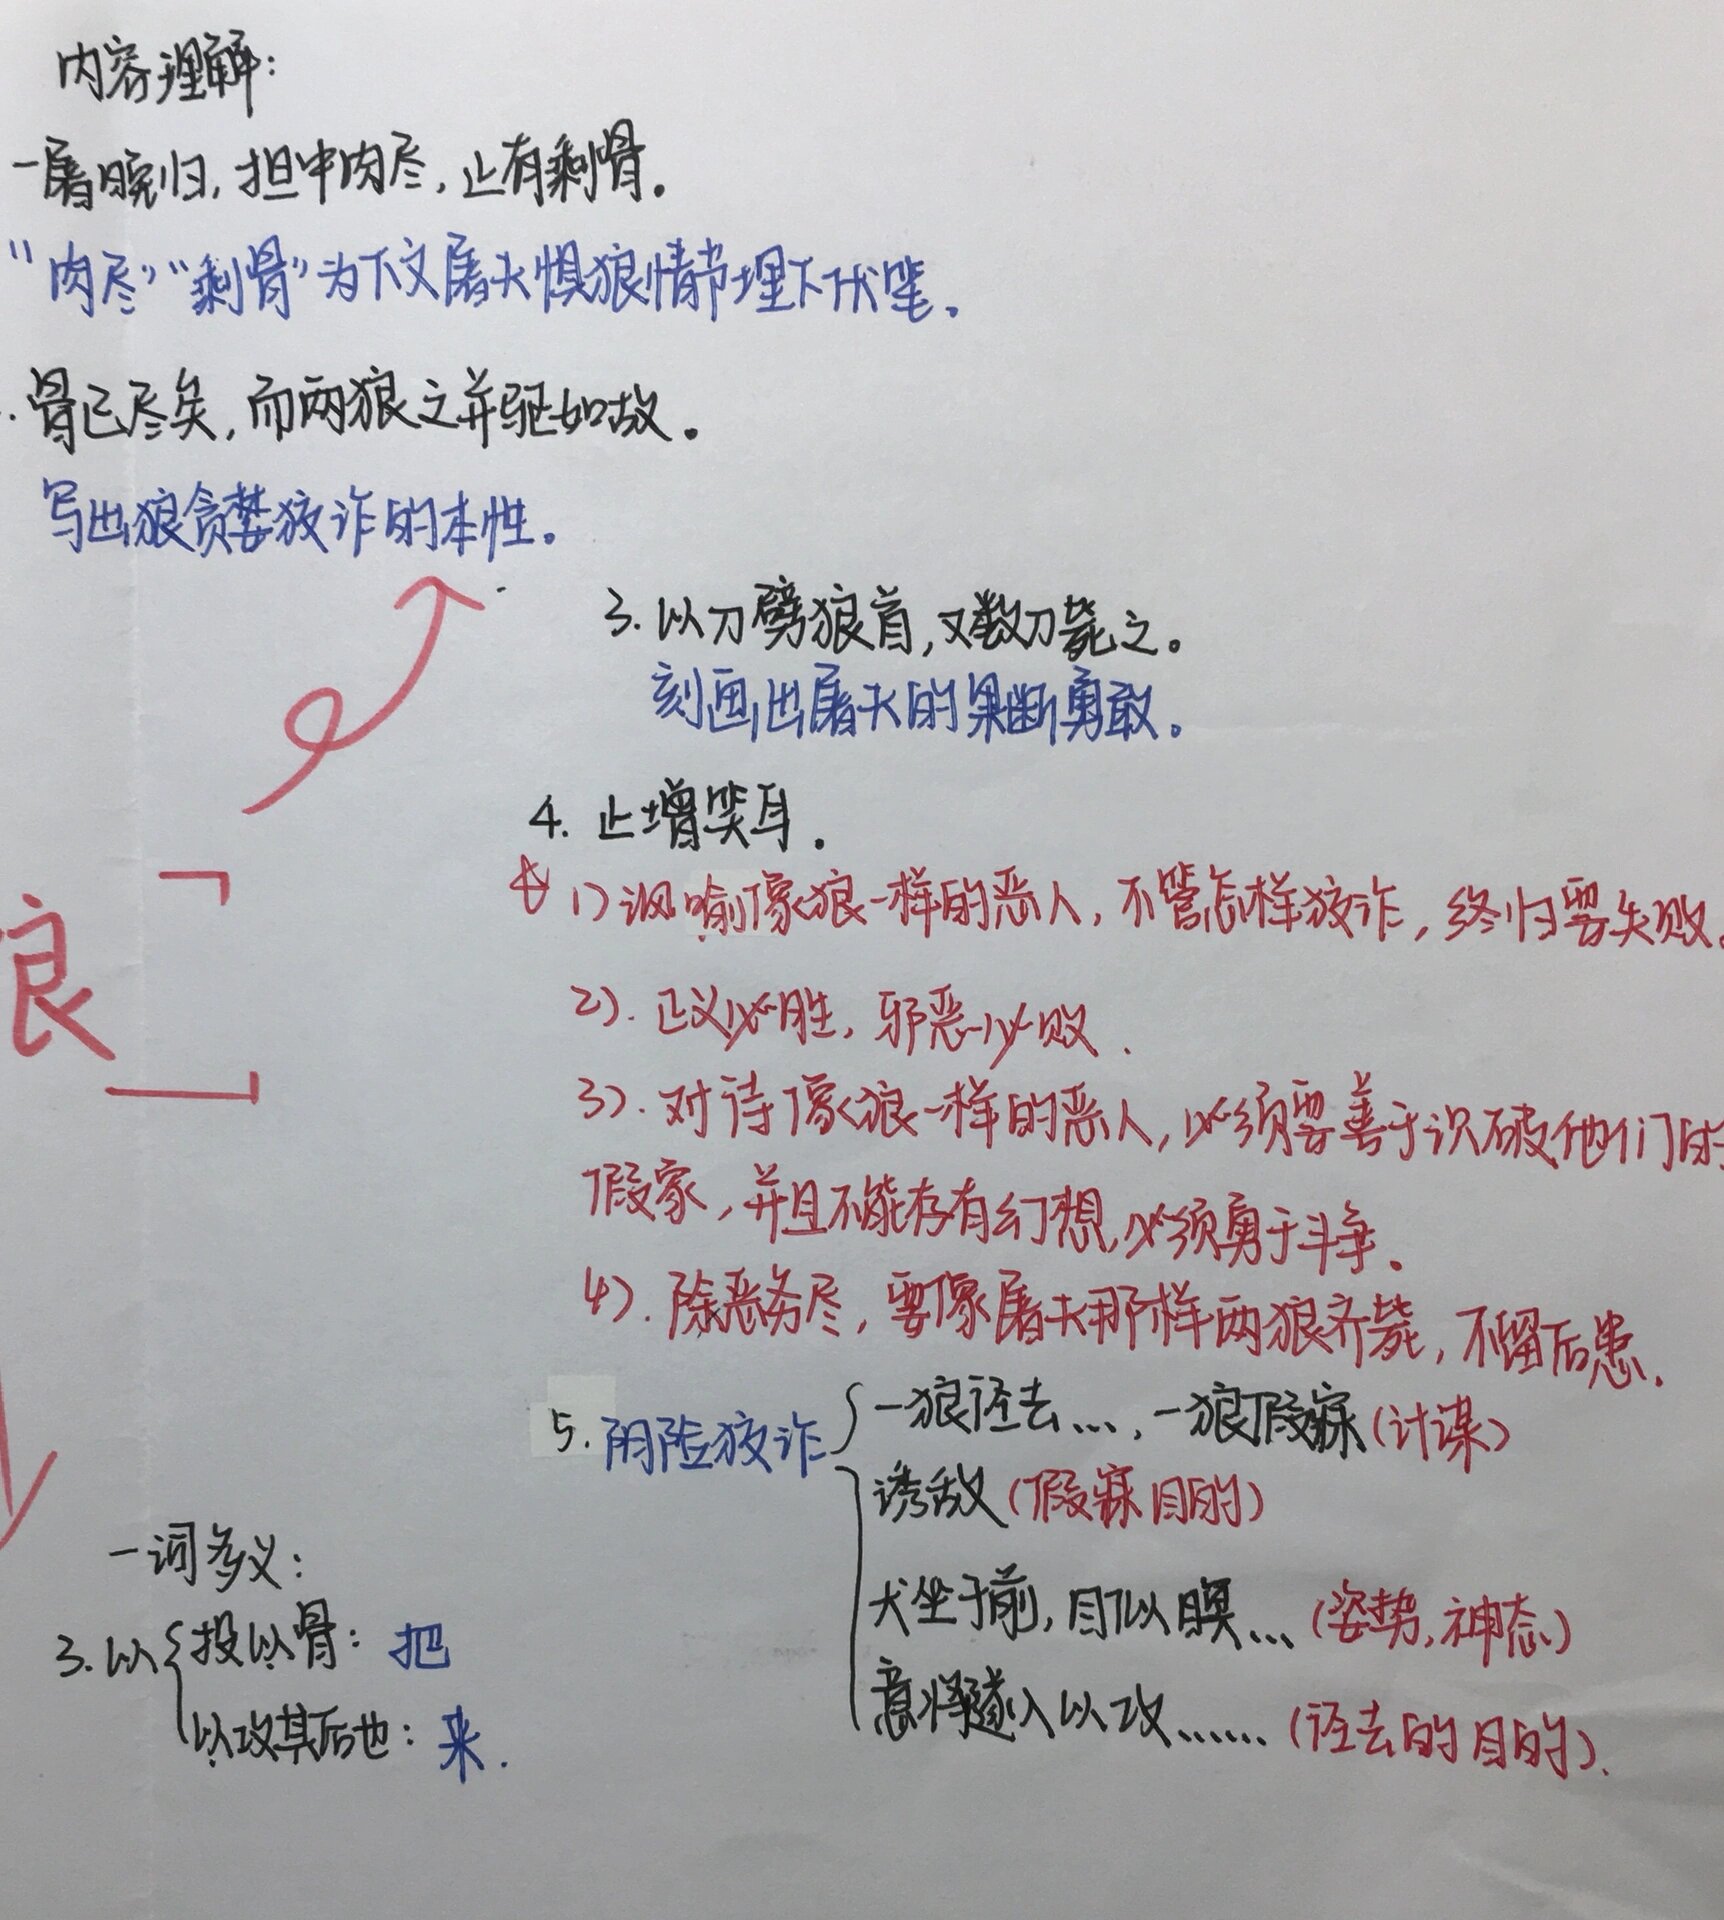 内容理解:
一屠晚归,担中肉尽,止有剩骨。
"肉尽""剩骨"为下文屠夫惧狼情节埋下伏笔。
. 骨已尽矣,而两狼之并驱如故。
写出狼贪婪狡诈的本性。
3. 以刀劈狼首,又数刀毙之。
刻画出屠夫的果断勇敢。
4. 止增笑耳.
1)讽喻像狼一样的恶人,不管怎样狡诈,终归要失败。
狼
2). 正义必胜, 邪恶必败.
3). 对待像狼一样的恶人,必须要善于识破他们的
假象,并且不能存有幻想,必须勇于斗争。
4). 除恶务尽,要像屠夫那样两狼齐毙,不留后患.
5. 阴险狡诈
一狼径去...,一狼假寐(计谋)
诱敌(假寐目的)
犬坐于前,目似瞑...(姿势,神态)
意将隧入以攻......(径去的目的).
一词多义:
3.以
投以骨:把
以攻其后也:来.